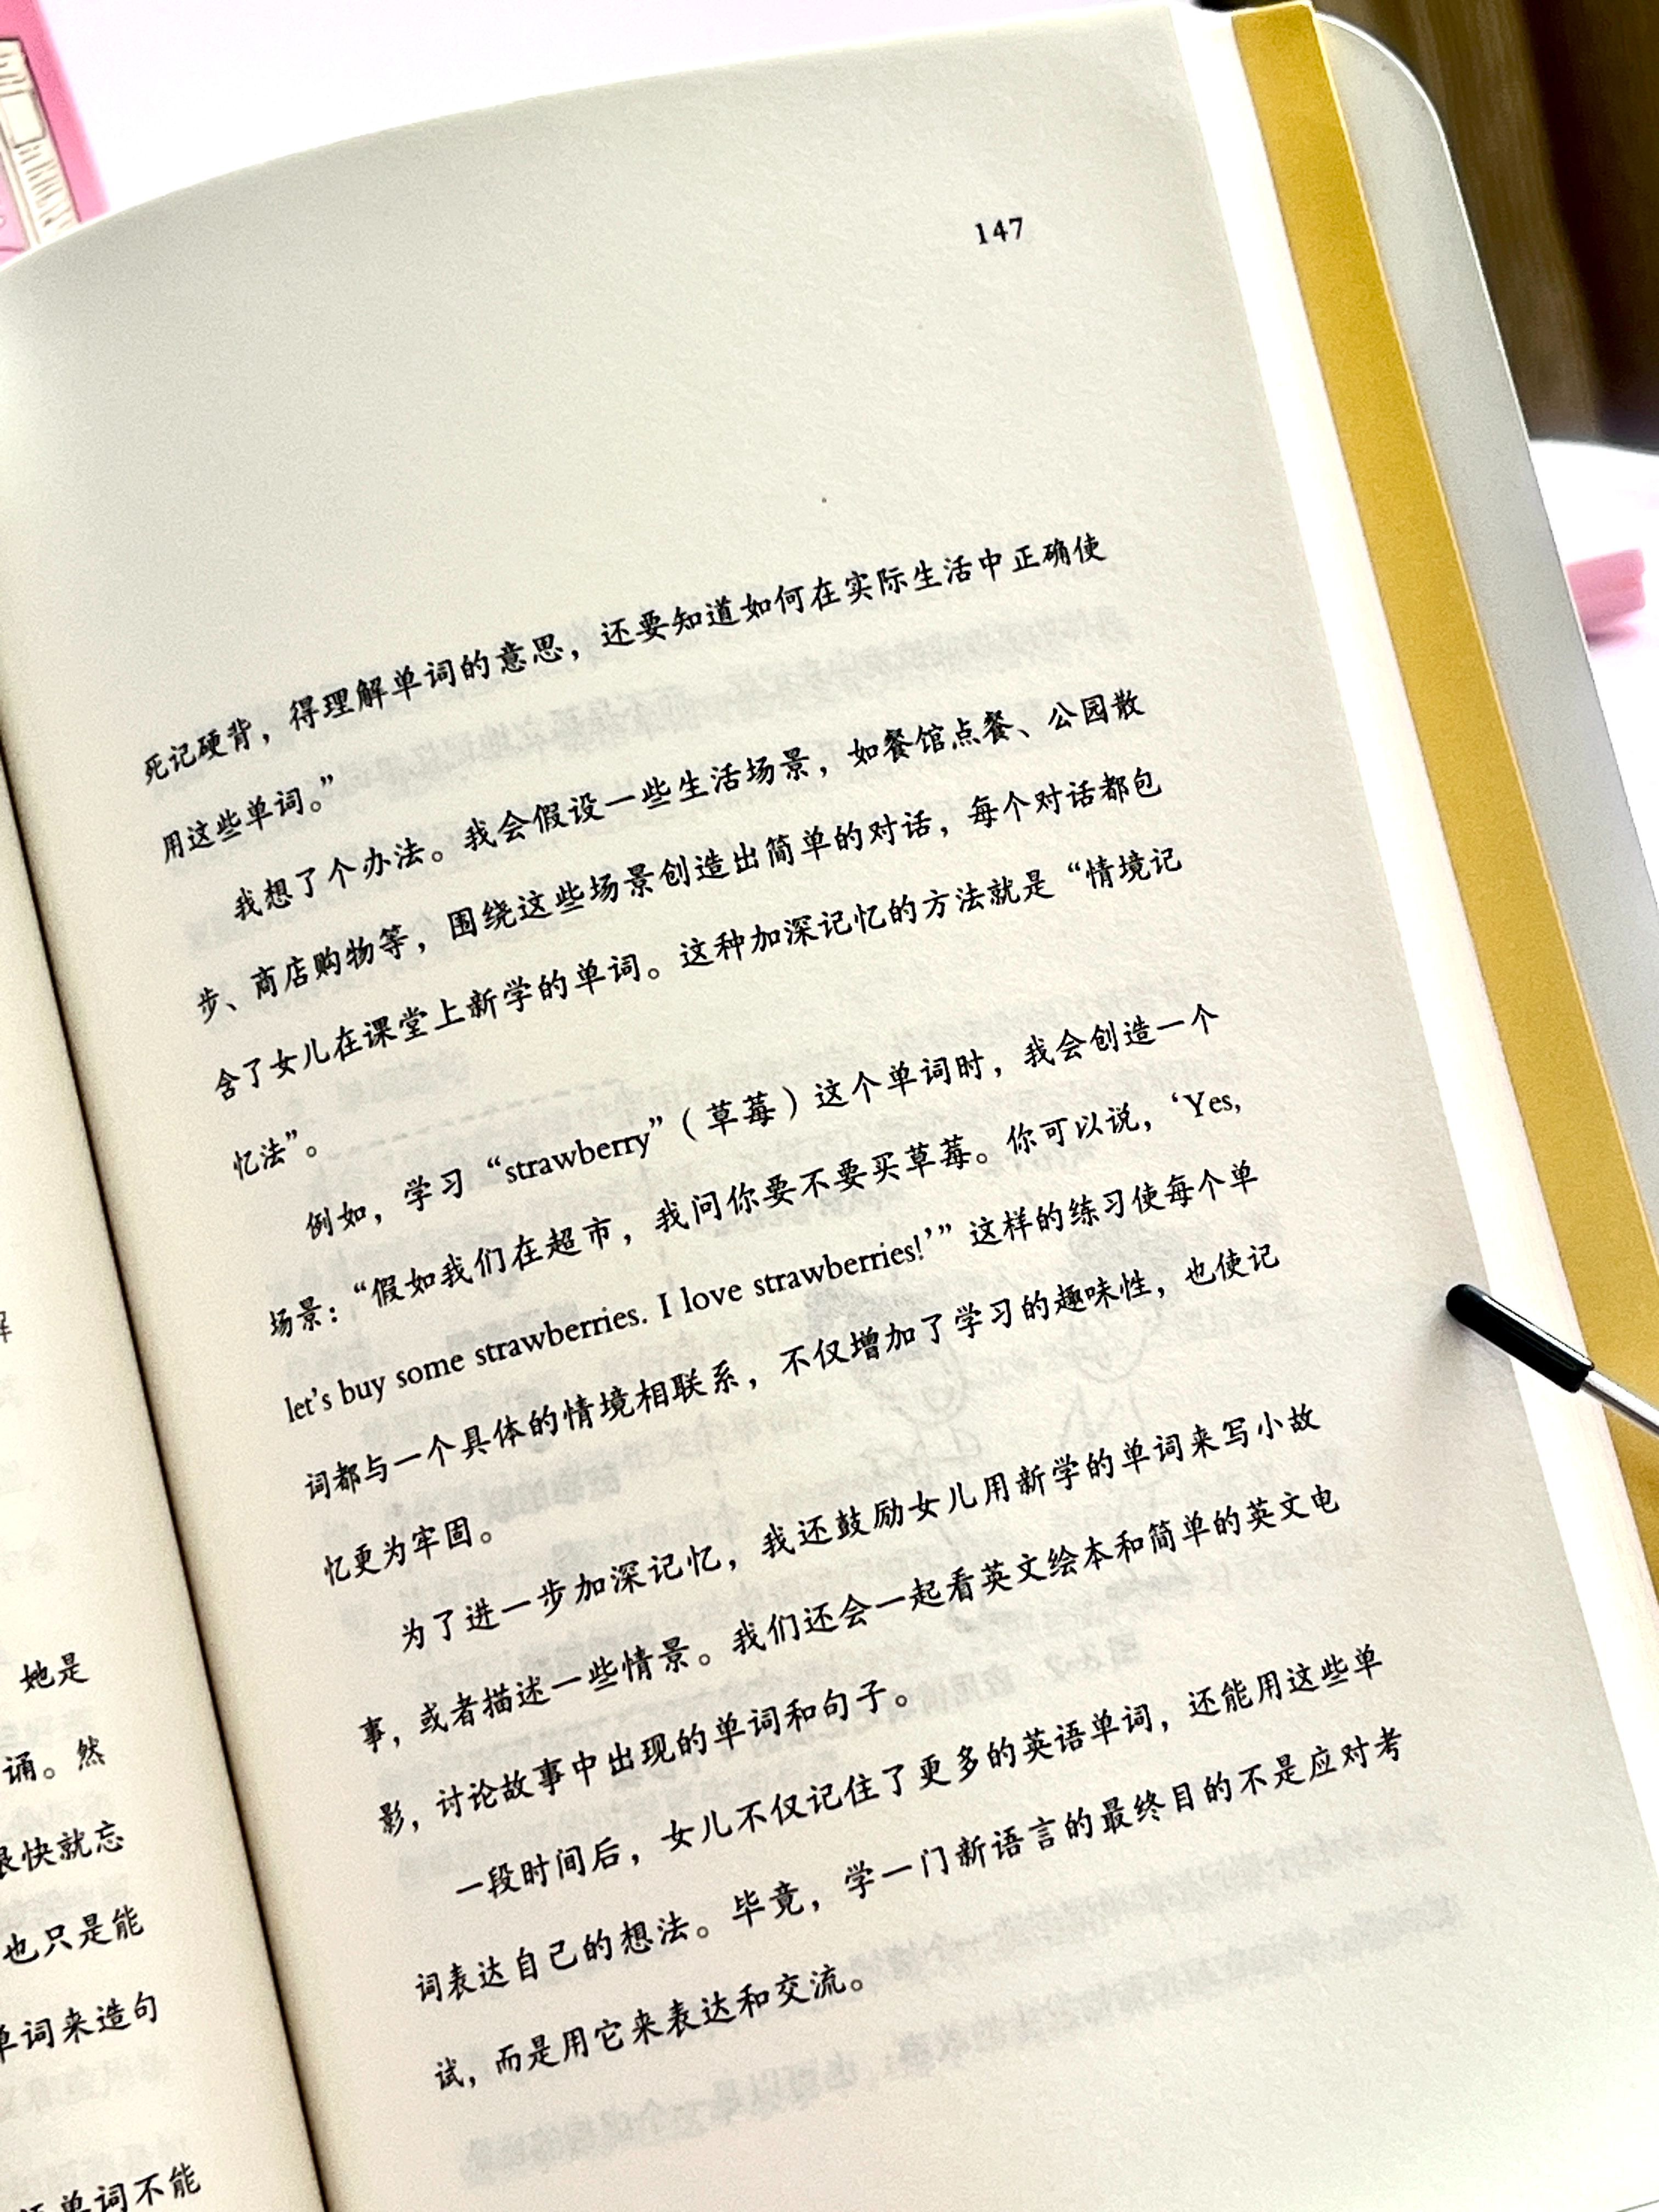 她是
诵。然
很快就忘
也只是能
单词来造句
单词不能
147
死记硬背，得理解单词的意思，还要知道如何在实际生活中正确使
用这些单词。”
我想了个办法。我会假设一些生活场景，如餐馆点餐、公园散
步、商店购物等，围绕这些场景创造出简单的对话，每个对话都包
含了女儿在课堂上新学的单词。这种加深记忆的方法就是“情境记
忆法”。
例如，学习“strawberry”（草莓）这个单词时，我会创造一个
场景：“假如我们在超市，我问你要不要买草莓。你可以说，‘Yes,
let's buy some strawberries. I love strawberries!’”这样的练习使每个单
词都与一个具体的情境相联系，不仅增加了学习的趣味性，也使记
忆更为牢固。
为了进一步加深记忆，我还鼓励女儿用新学的单词来写小故
事，或者描述一些情景。我们还会一起看英文绘本和简单的英文电
影，讨论故事中出现的单词和句子。
一段时间后，女儿不仅记住了更多的英语单词，还能用这些单
词表达自己的想法。毕竟，学一门新语言的最终目的不是应对考
试，而是用它来表达和交流。